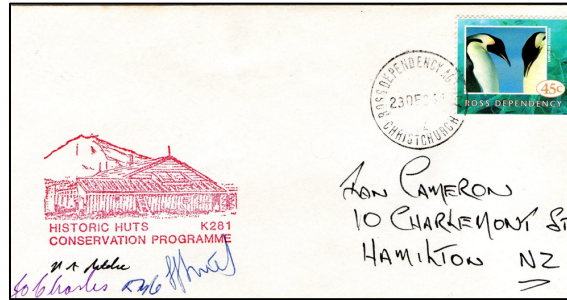 45c
ROSS DEPENDENCY
ROSS DEPENDENCY AG
23 DEC
CHRISTCHURCH
HISTORIC HUTS K281
CONSERVATION PROGRAMME
IAN CAMERON
10 CHARLEMONT ST
HAMILTON NZ